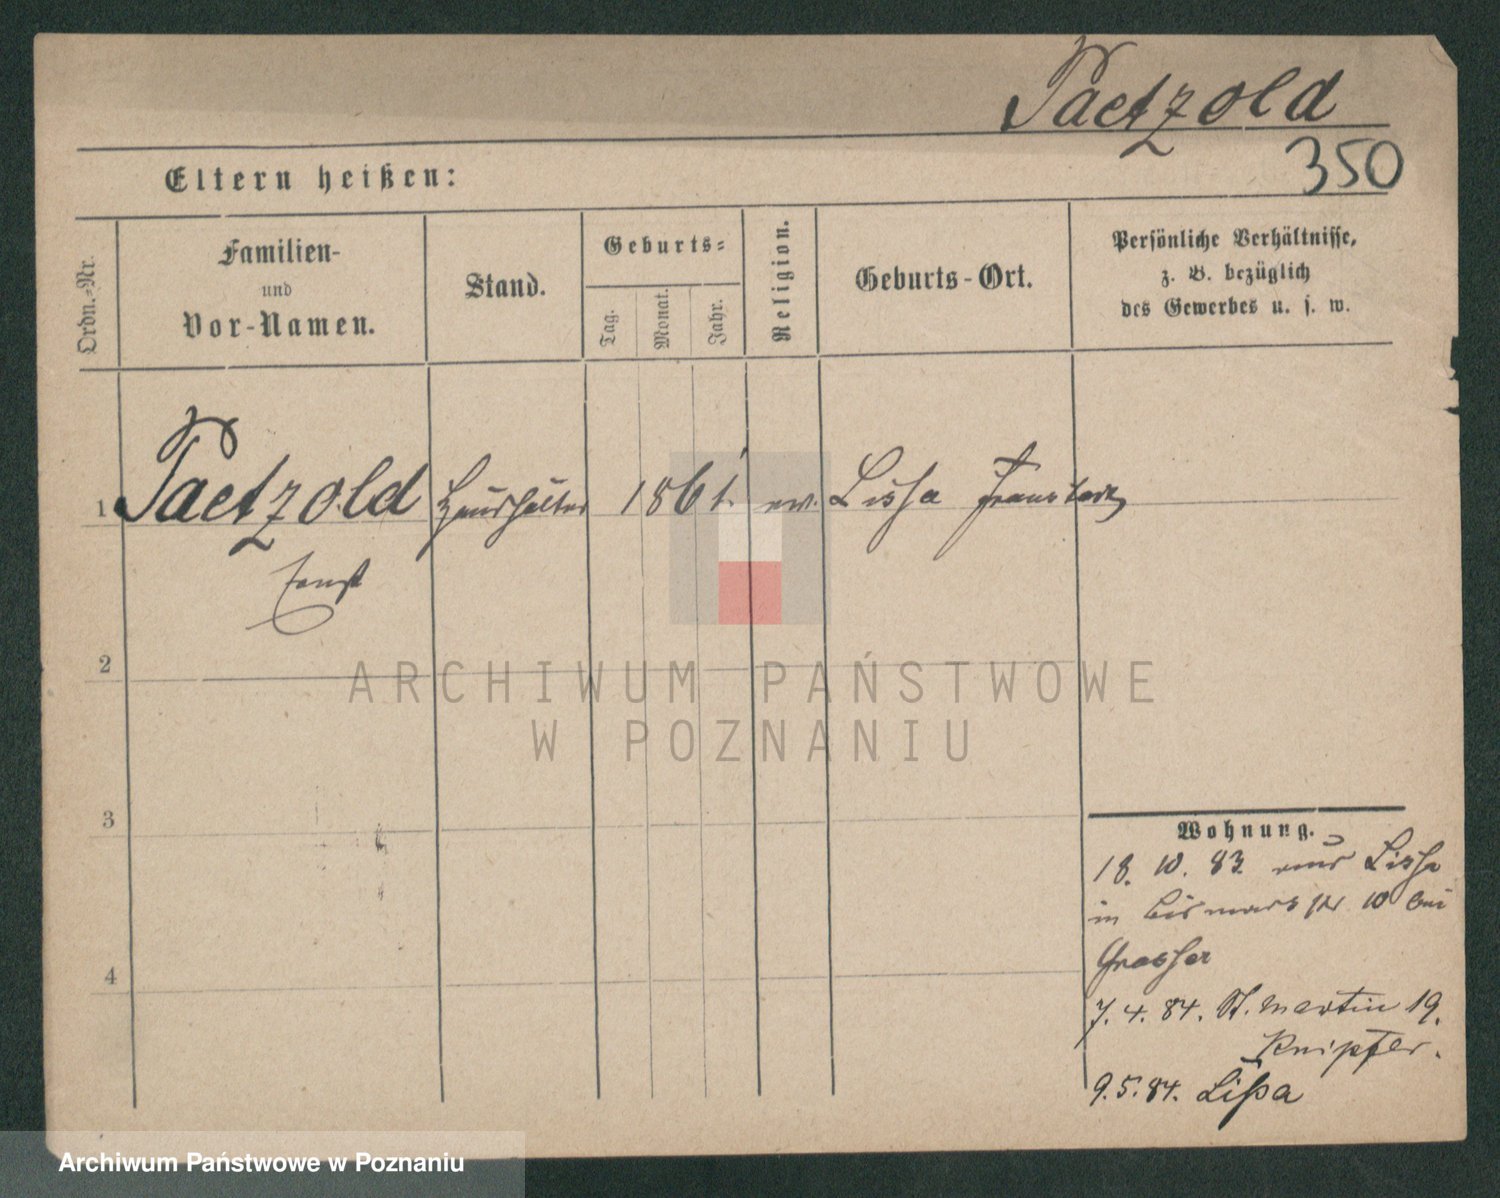 Paetzold
350
Eltern heißen:
Ordn.-Nr.
Familien-
und
Vor-Namen.
Stand.
Geburts-
Tag.
Monat.
Jahr.
Religion.
Geburts-Ort.
Persönliche Verhältnisse,
z. B. bezüglich
des Gewerbes u. s. w.
1 Paetzold Haushälter 1861. ev. Lissa
Ernst
2
ARCHIWUM PAŃSTWOWE
W POZNANIU
3
Wohnung.
18. 10. 83. aus Lissa
in Bismarckstr 10 bei
4
7. 4. 84. St. Martin 19.
Knipfer.
9. 5. 84. Lißa
Archiwum Państwowe w Poznaniu